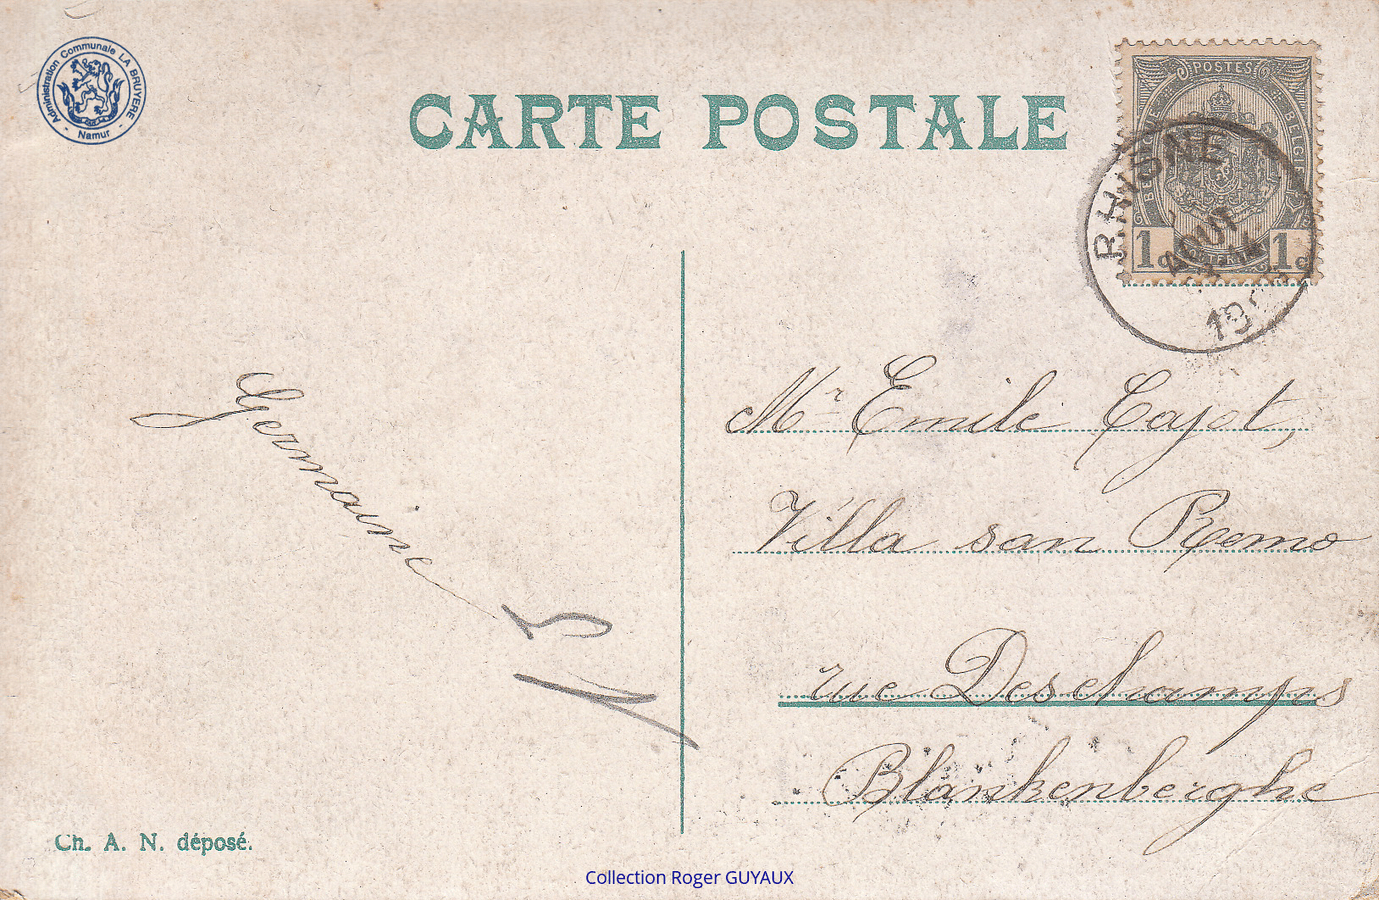 Administration Communale LA BRUYERE
- Namur -
CARTE POSTALE
POSTES
BELGIE
1c 1c
RHISNE
AOUT
Mr Emile Cajot,
Villa san Remo
rue Deschamps
Blankenberghe
Germaine
Ch. A. N. déposé.
Collection Roger GUYAUX